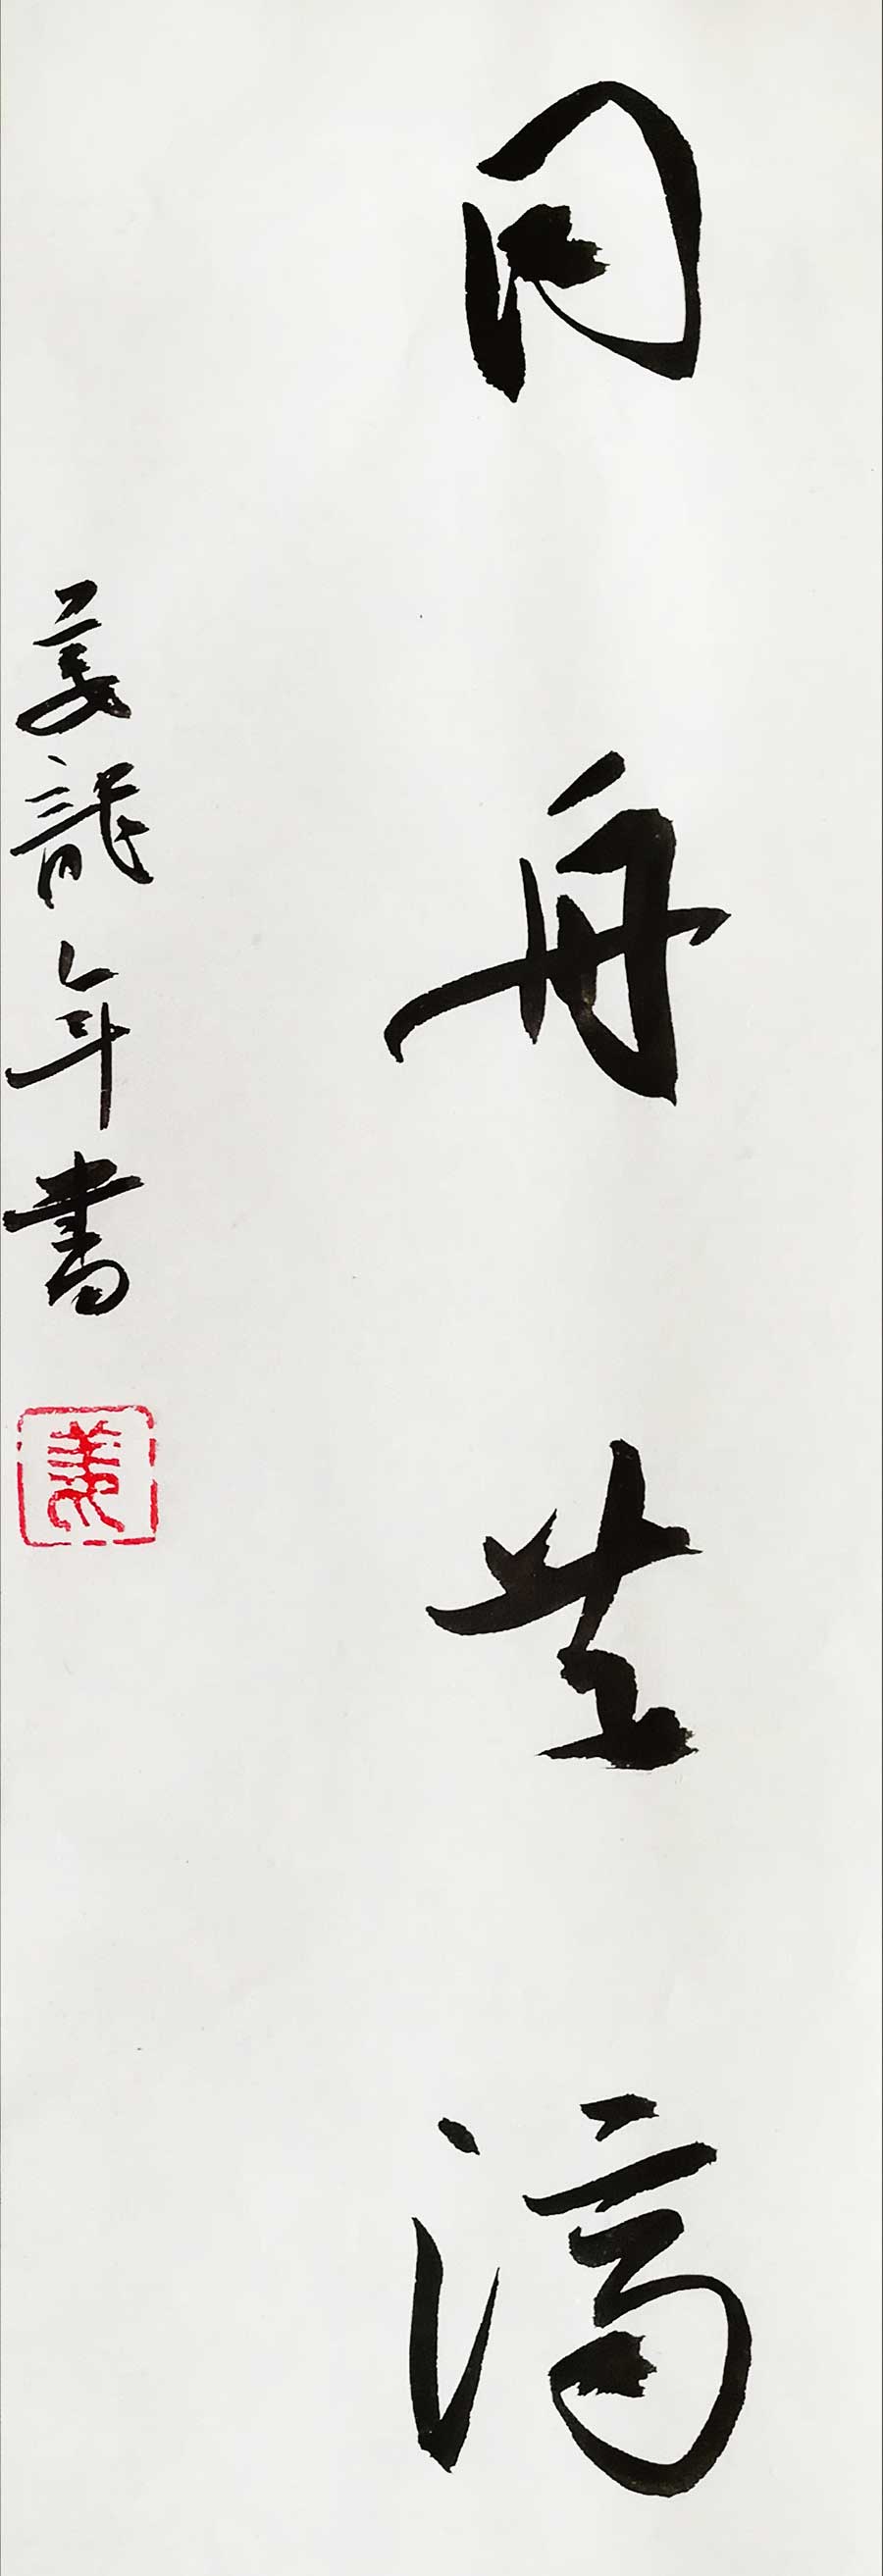 同舟共濟
姜龍年書
姜